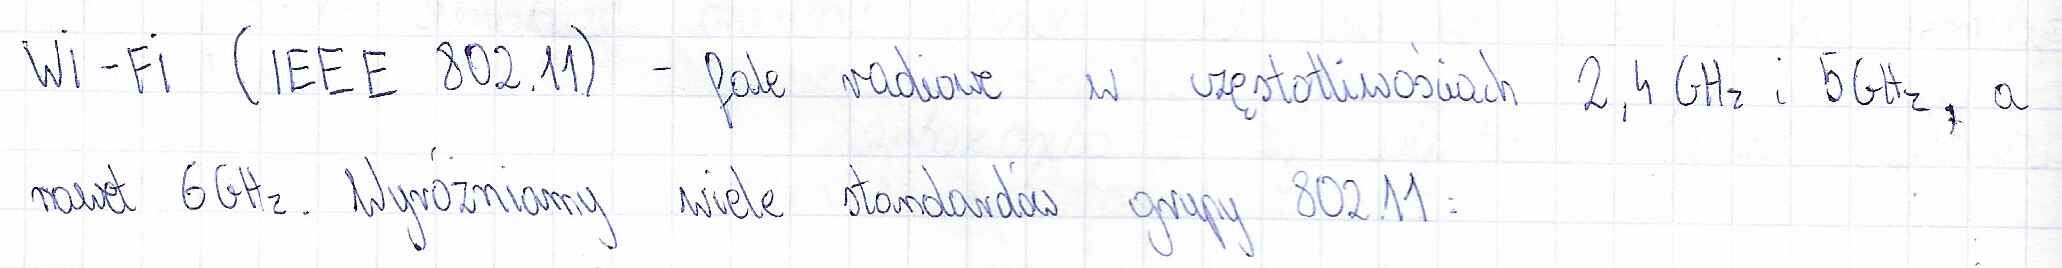 Wi-Fi (IEEE 802.11) - fale radiowe w częstotliwościach 2,4 GHz i 5GHz, a
nawet 6GHz. Wyróżniamy wiele standardów grupy 802.11: